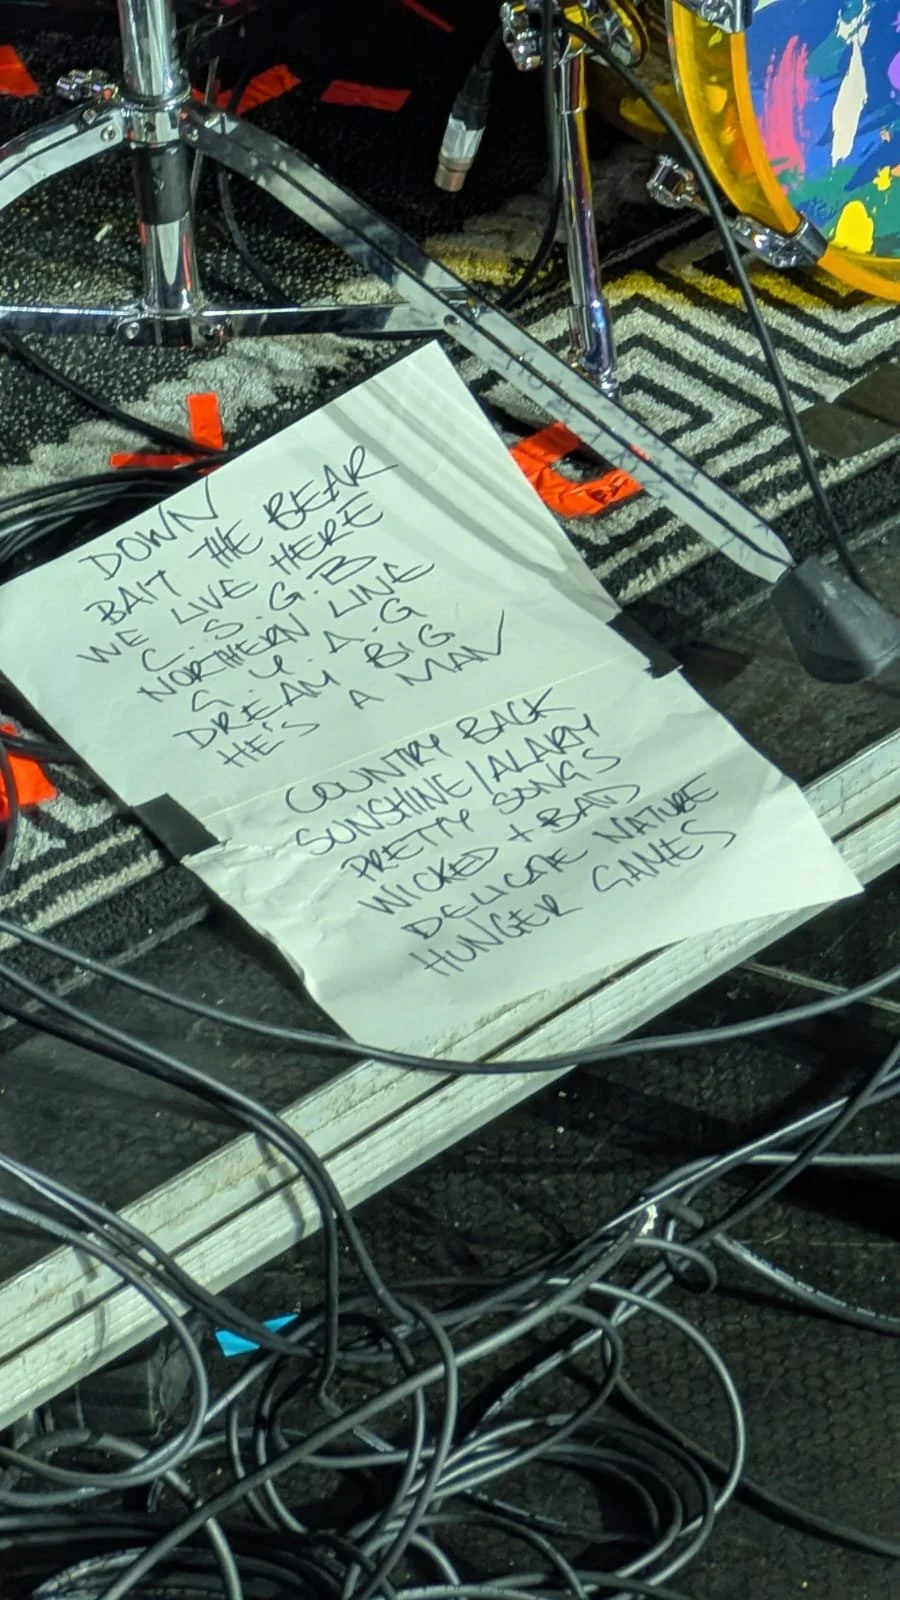 DOWN
BAIT THE BEAR
WE LIVE HERE
C. S. G. B
NORTHERN LINE
G. Y. A. G
DREAM BIG
HE'S A MAN
COUNTRY BACK
SUNSHINE/ALARM
PRETTY SONGS
WICKED + BAD
DELICATE NATURE
HUNGER GAMES